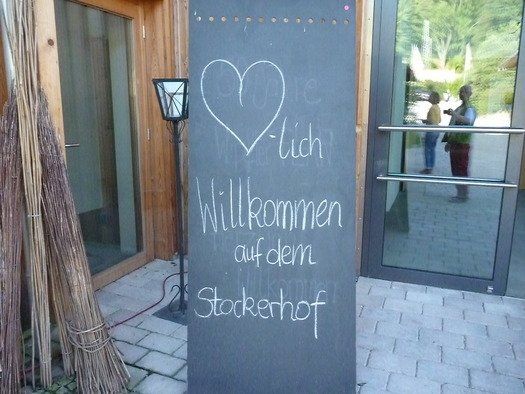 ♡-lich
Willkommen
auf dem
Stockerhof